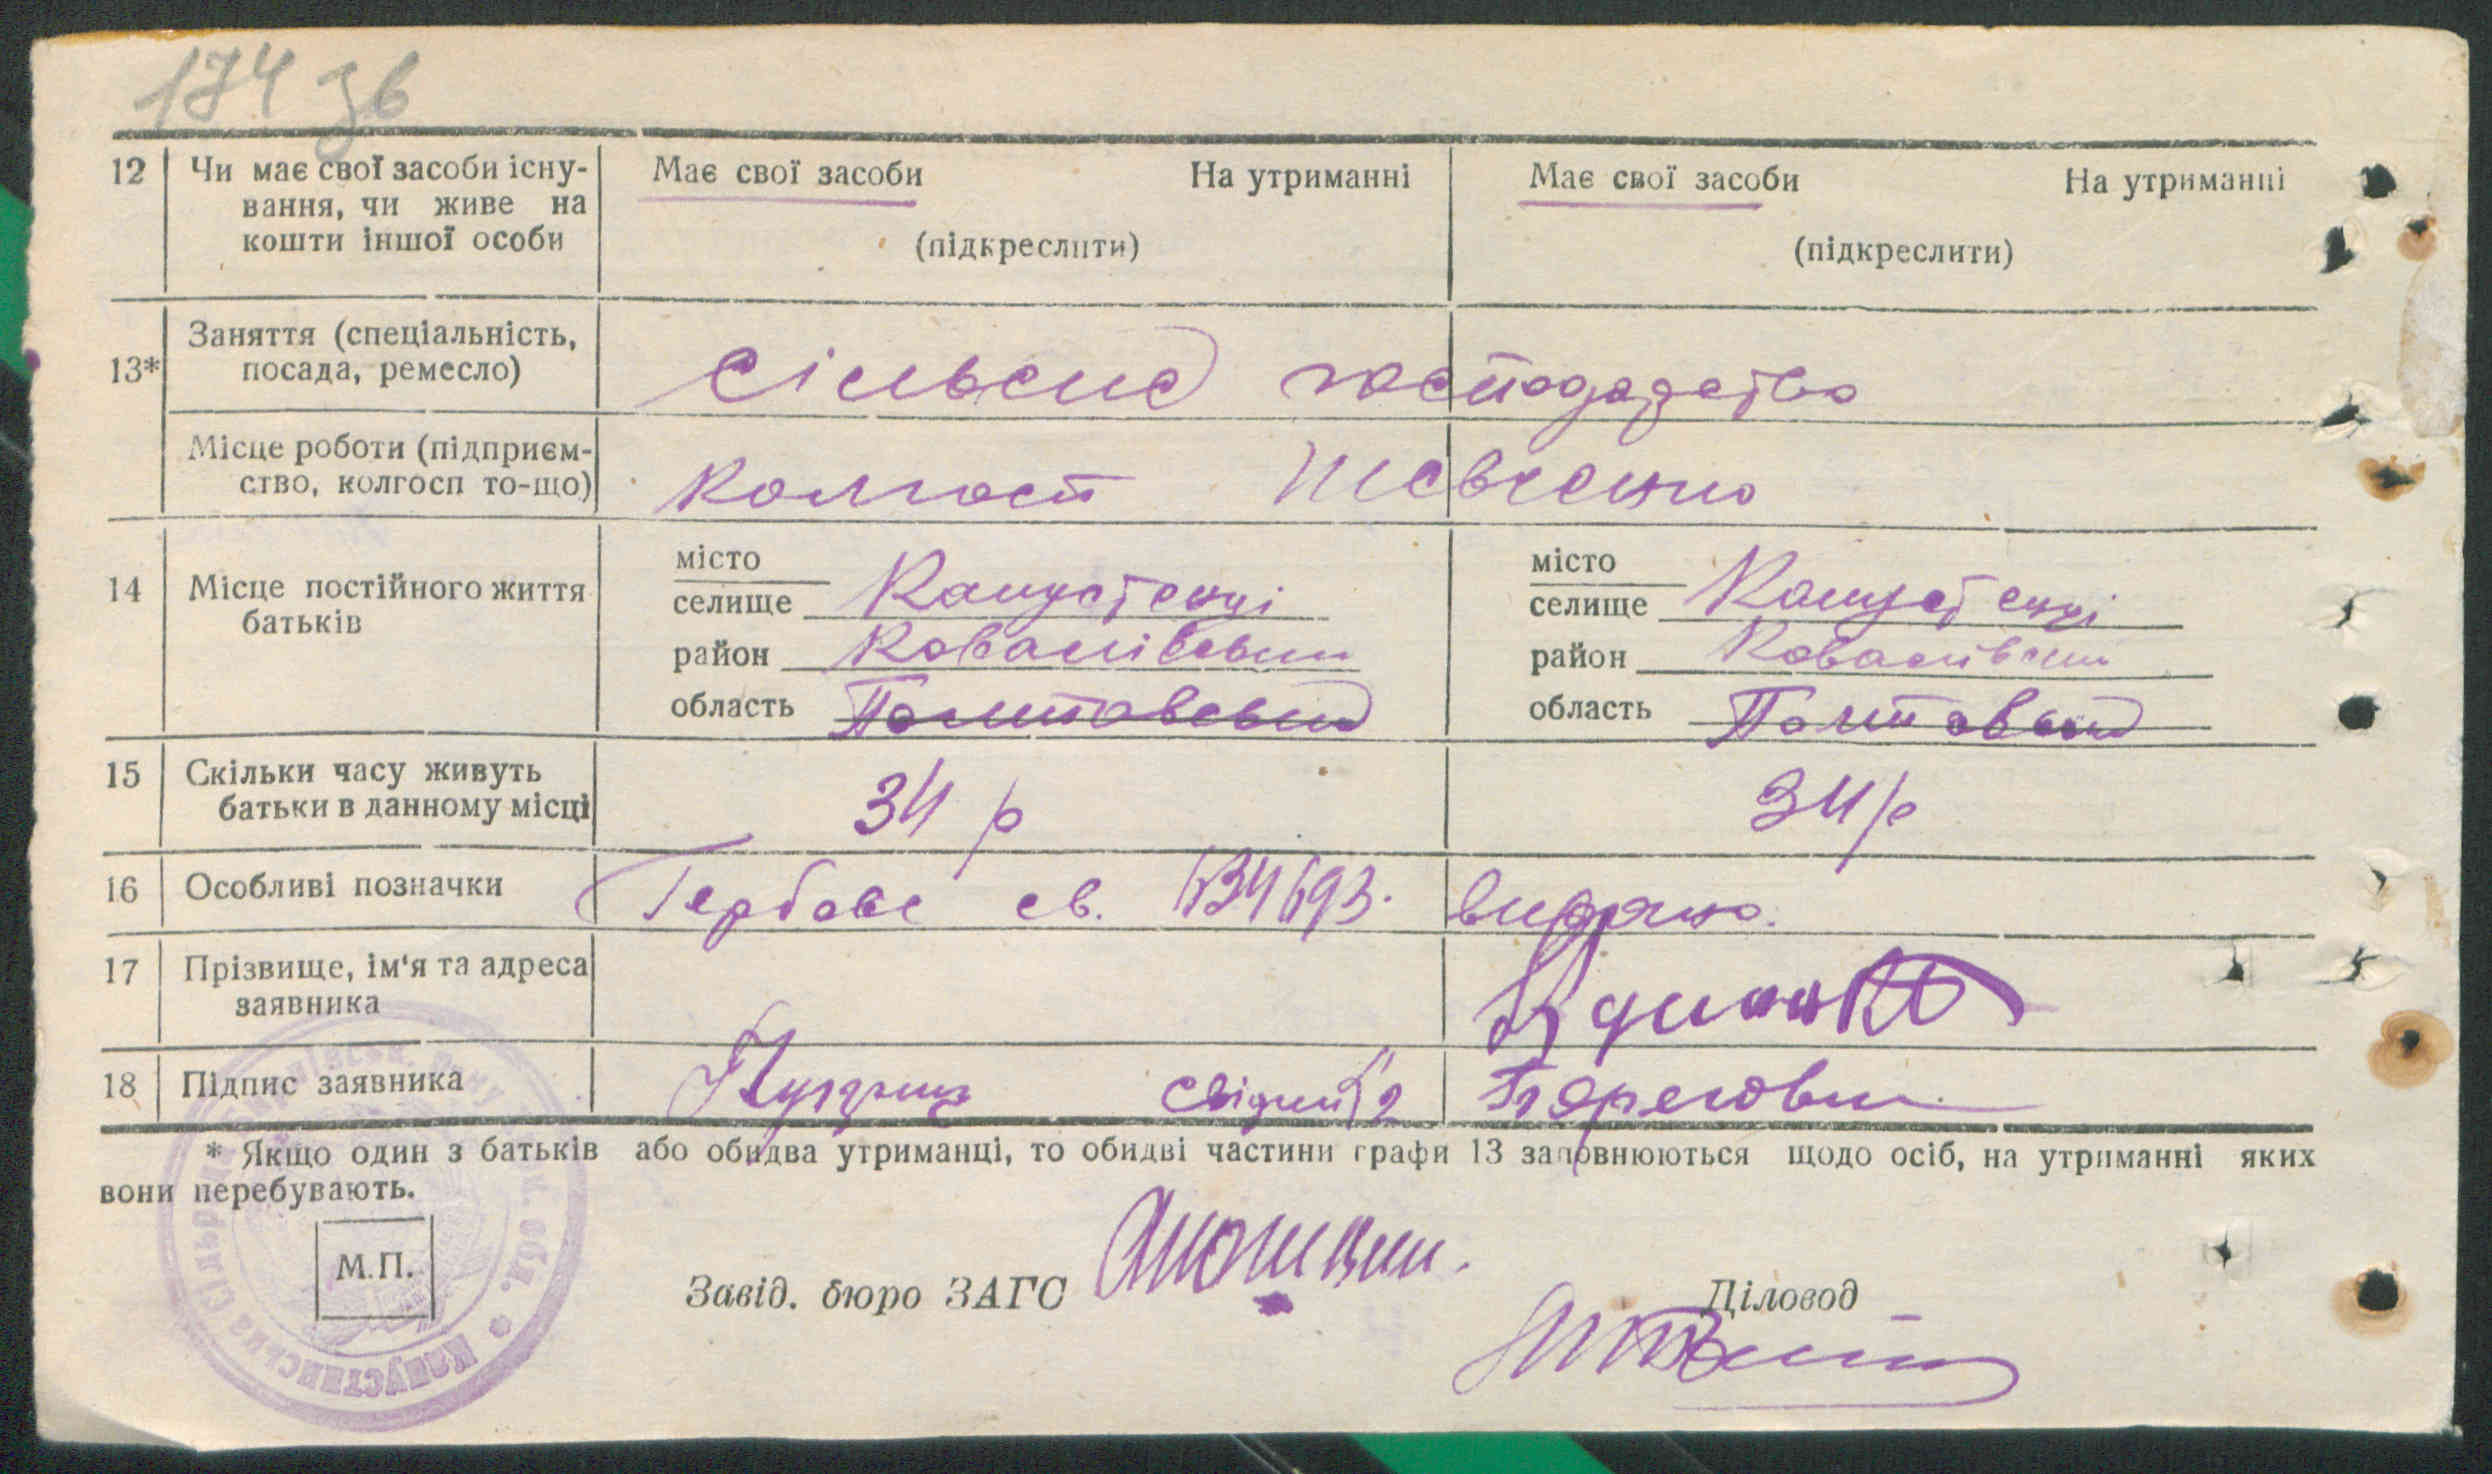 174 зв
12 Чи має свої засоби існу- Має свої засоби На утриманні Має свої засоби На утриманні
вання, чи живе на
кошти іншої особи (підкреслити) (підкреслити)
Заняття (спеціальність,
13* посада, ремесло) сільське господарство
Місце роботи (підприєм-
ство, колгосп то-що) колгосп Шевченко
14 Місце постійного життя
батьків
місто
селище Капустенці
район Ковалівський
область Полтавської
місто
селище Капустенці
район Ковалівський
область
15 Скільки часу живуть
батьки в данному місці 34 р 34 р
16 Особливі позначки Гербове св. видано.
17 Прізвище, ім'я та адреса
заявника
18 Підпис заявника
* Якщо один з батьків або обидва утриманці, то обидві частини графи 13 заповнюються щодо осіб, на утриманні яких
вони перебувають.
М.П.
Завід. бюро ЗАГС Діловод